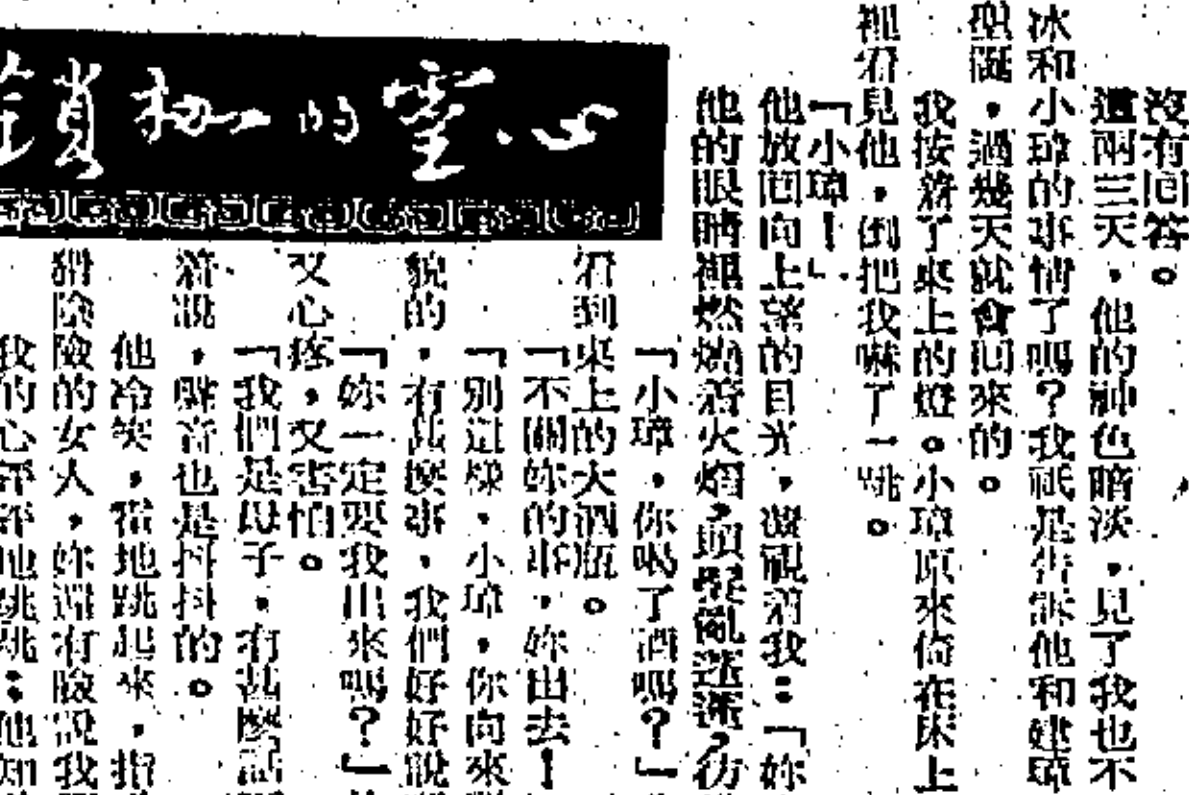 沒有回答。
這兩三天，他的神色暗淡，見了我也不
冰和小璋的事情了嗎？我祇是告訴他和建璋
聖誕，過幾天就會回來的。
我按着了桌上的燈。小璋原來倚在床上
裡看見他，倒把我嚇了一跳。
「小璋！」
他放回向上望的目光，凝視着我：「妳
他的眼睛裡燃燒着火焰，頭髮亂蓬蓬，彷
心靈的枷鎖
「小璋，你喝了酒嗎？」
看到桌上的大酒瓶。
「不關妳的事，妳出去！
「別這樣，小璋，你向來
貌的，有甚麼事，我們好好說
「妳一定要我出來嗎？」
又心疼，又害怕。
「我們是母子，有甚麼話
着說，聲音也是抖抖的。
他冷笑，霍地跳起來，指
險的女人，妳還有臉說我
我的心怦怦地跳跳：他知